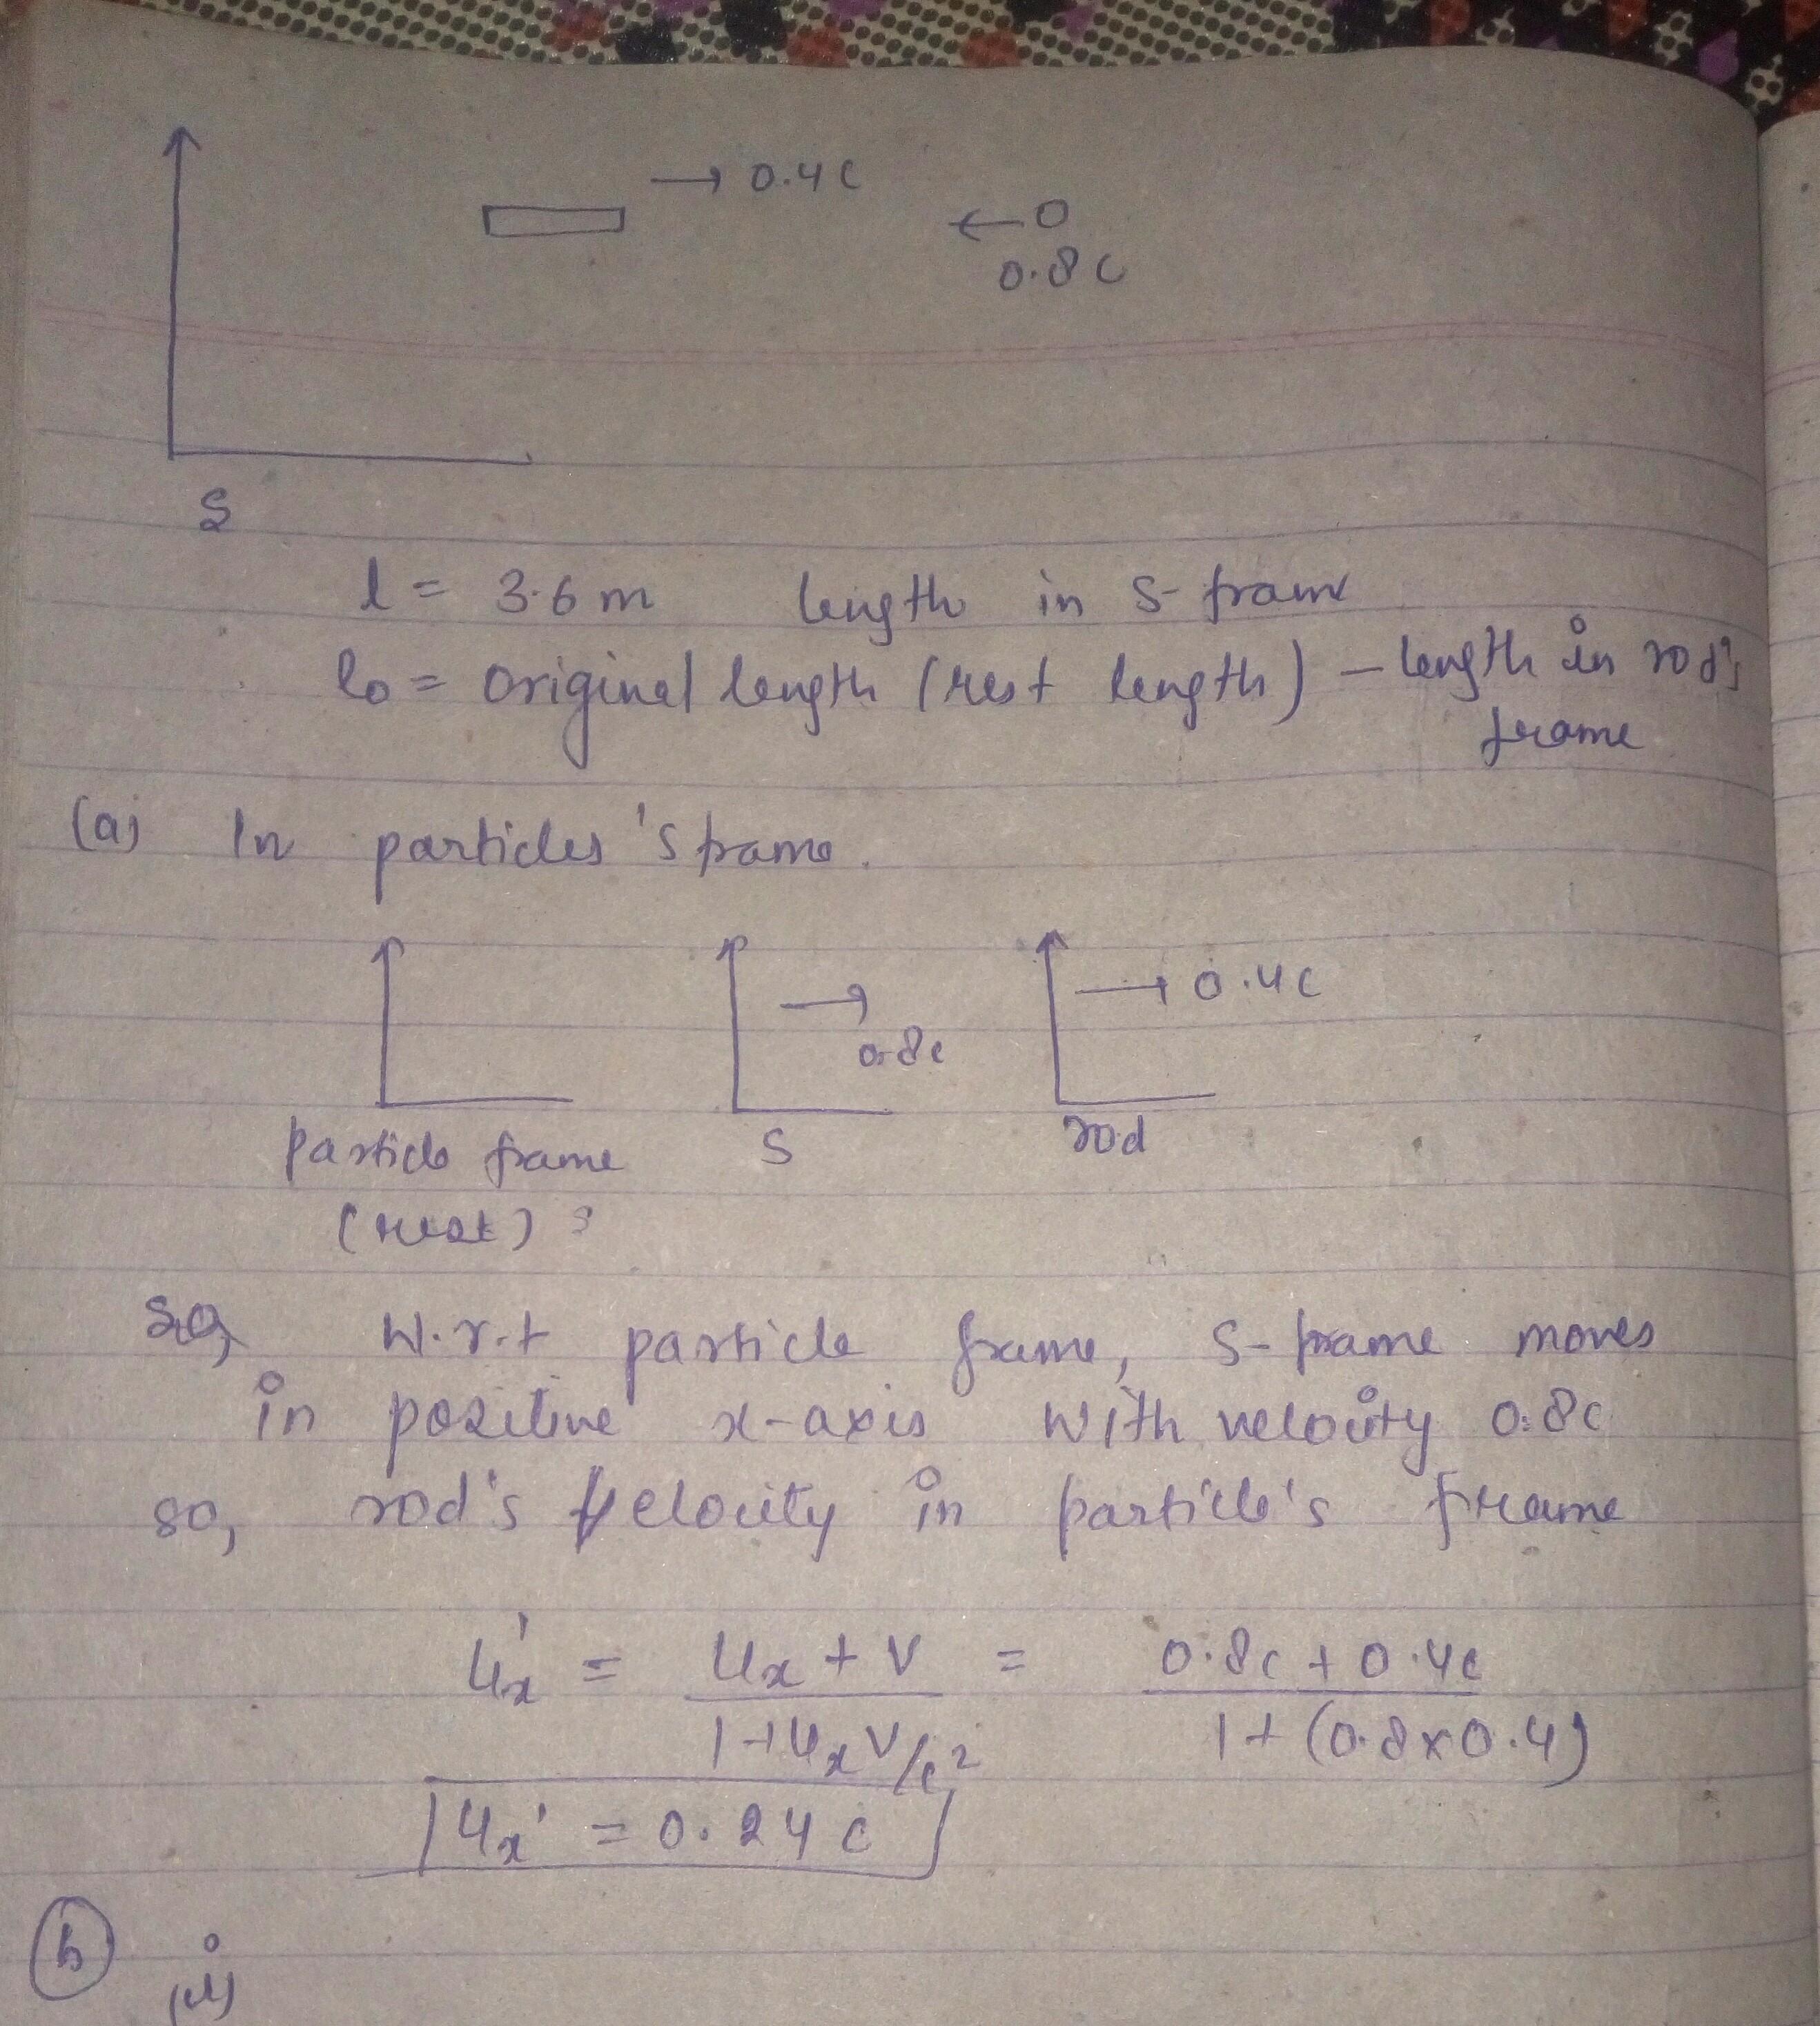 → 0.4c
← O
0.8c
S
l = 3.6 m length in S-frame
lo = original length (rest length) - length in rod's
frame
(a) In particles's frame.
→ 0.8c
→ 0.4c
particle frame
S
rod
(rest)
so, W.r.t particle frame, S-frame moves
in positive x-axis with velocity 0.8c
so, rod's velocity in particle's frame
ux' = ux + v / 1+uxv/c² = 0.8c + 0.4c / 1+(0.8x0.4)
ux' = 0.24c
(b) (i)